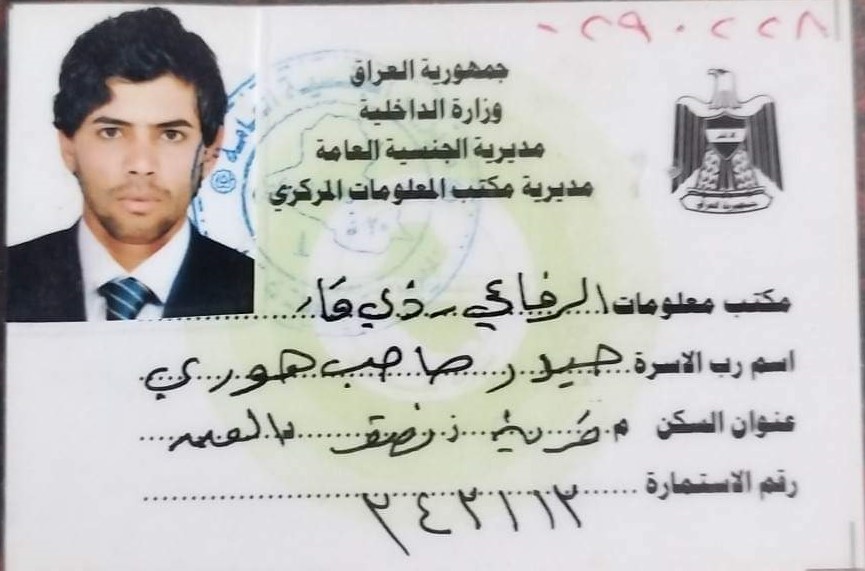 ٠٢٩٠٢٢٨
جمهورية العراق
وزارة الداخلية
مديرية الجنسية العامة
مديرية مكتب المعلومات المركزي
مكتب معلومات الرفاعي - ذي قار
اسم رب الاسرة حيدر صاحب هوري
عنوان السكن
رقم الاستمارة